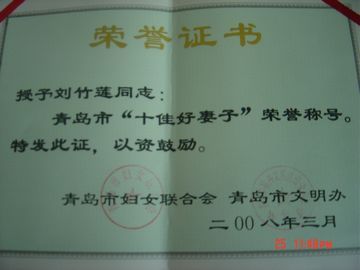 荣誉证书
授予刘竹莲同志：
青岛市“十佳好妻子”荣誉称号。
特发此证，以资鼓励。
青岛市妇女联合会 青岛市文明办
二00八年三月